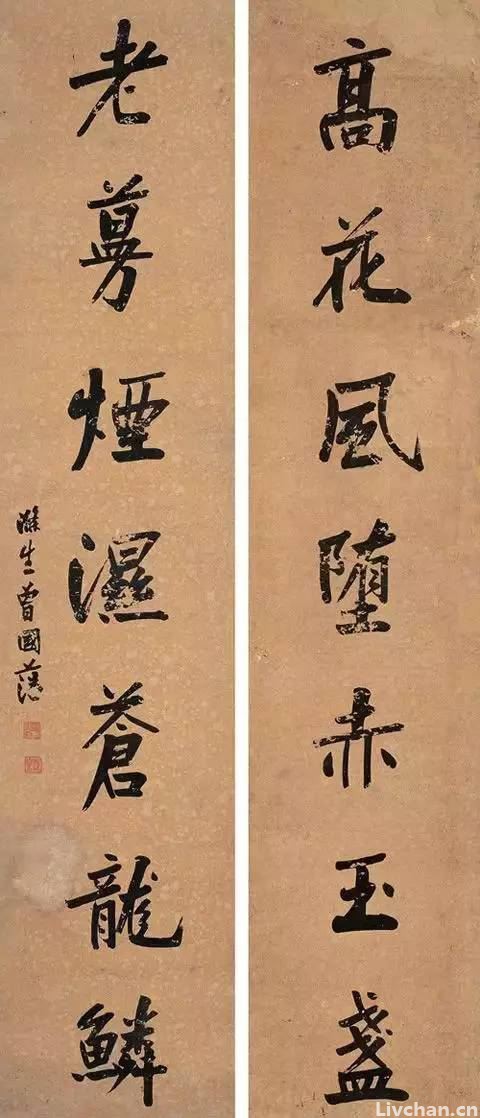 髙花風堕赤玉盞
老蔓煙濕蒼龍鱗
滌生曾國藩
Livchan.cn